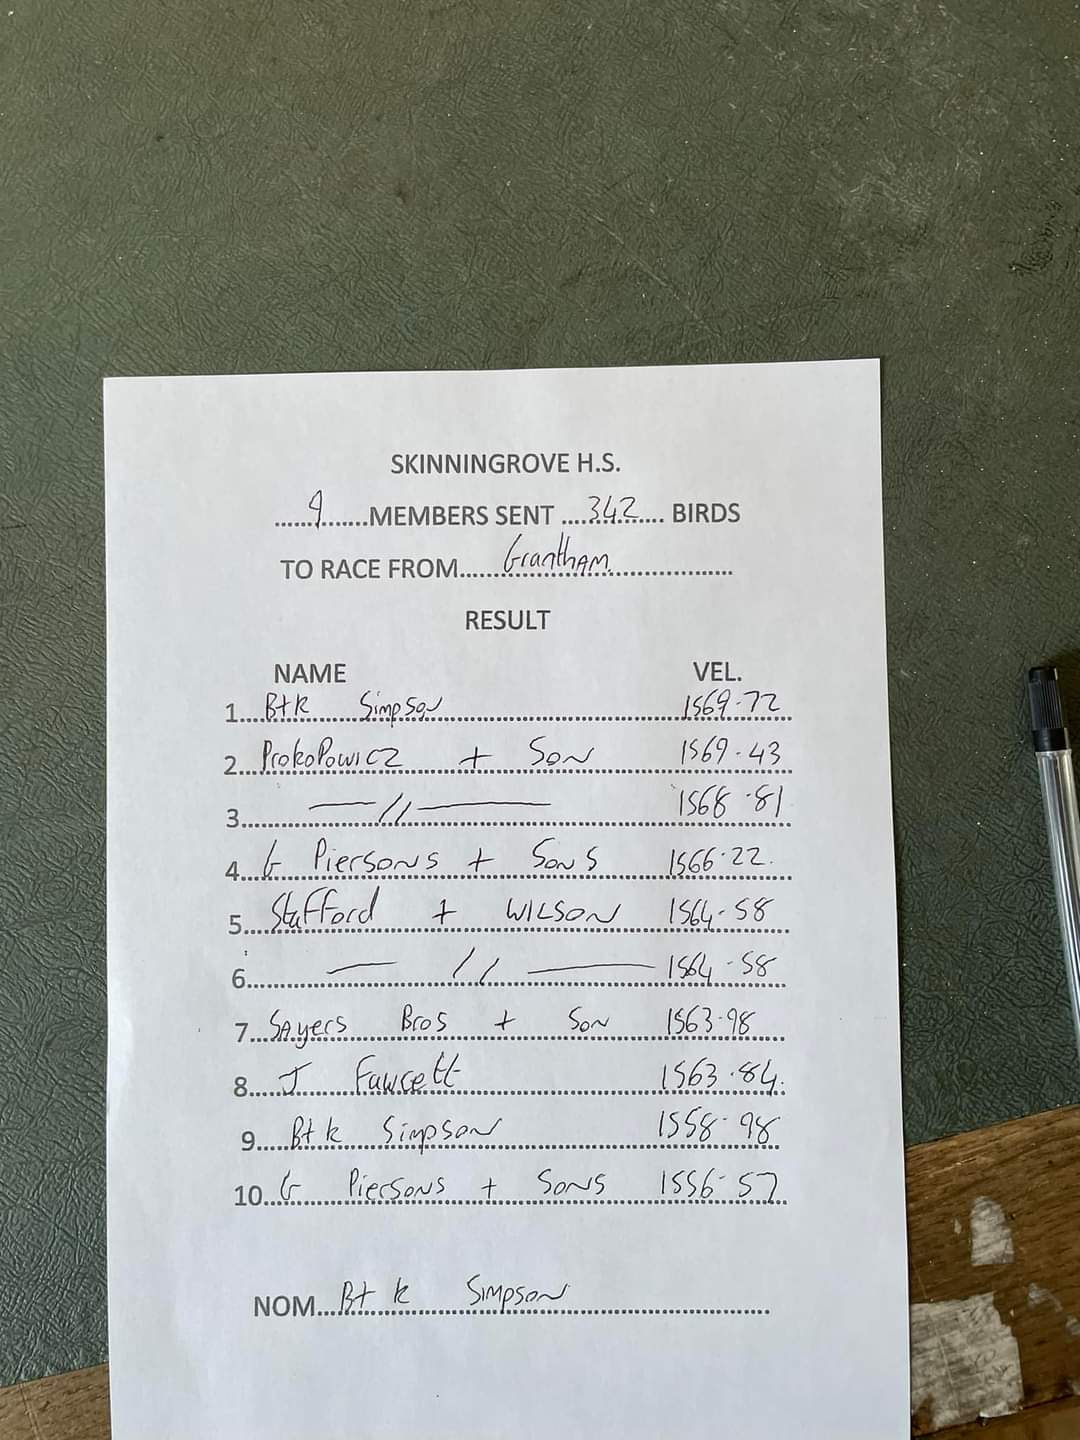 SKINNINGROVE H.S.
9 MEMBERS SENT 342 BIRDS
TO RACE FROM Grantham.
RESULT
NAME VEL.
1. B+K Simpson 1569.72
2. ProkoPowicz + Son 1569.43
3. —//— 1568.81
4. G Piersons + Sons 1566.22.
5. Stafford + WILSON 1564.58
6. — // — 1564.58
7. SAyers Bros + Son 1563.98
8. J Fawcett 1563.84.
9. B+k Simpson 1558.98
10. G Piersons + Sons 1556.57
NOM B+k Simpson